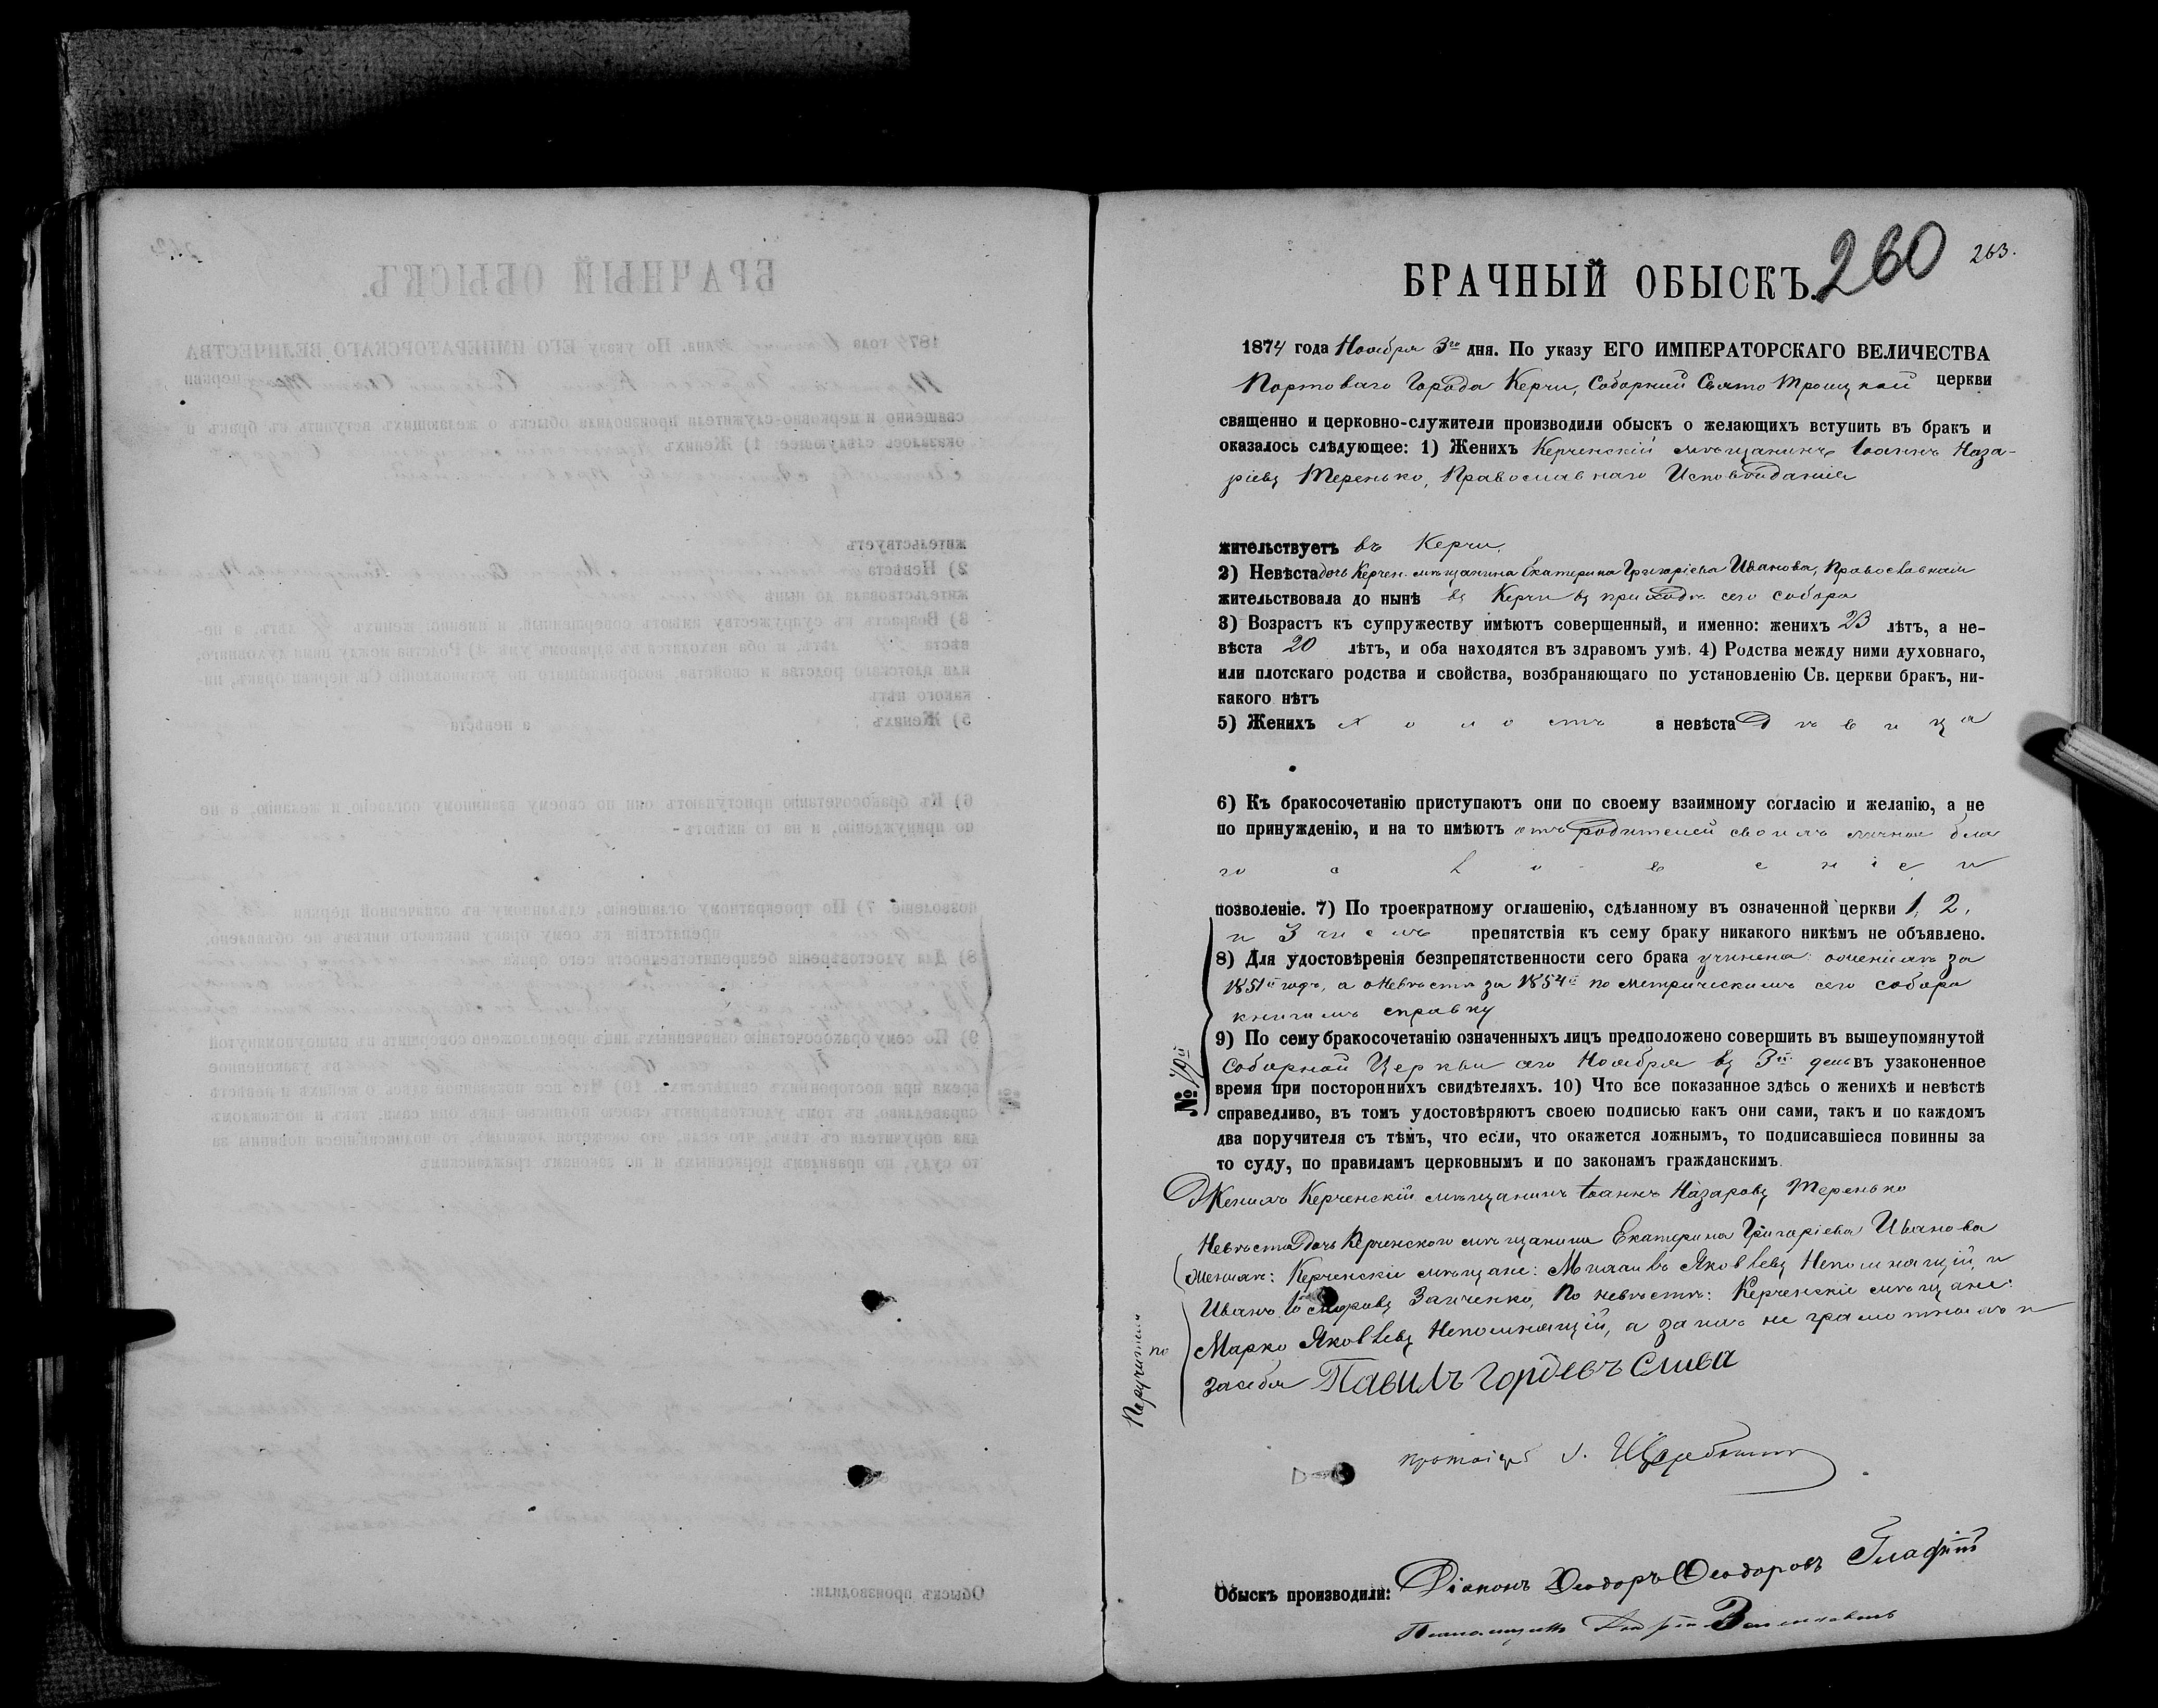 260 263.
БРАЧНЫЙ ОБЫСКЪ.
1874 года Ноября 3го дня. По указу ЕГО ИМПЕРАТОРСКАГО ВЕЛИЧЕСТВА
Портоваго Города Керчи, Соборной Свято Троицкой церкви
священно и церковно-служители производили обыскъ о желающихъ вступить въ бракъ и
оказалось слѣдующее: 1) Женихъ Керченскій мѣщанинъ Іоаннъ Наза-
ріевъ Теренько, Православнаго Исповѣданія
жительствуетъ въ Керчи.
2) Невѣста дочь Керчен. мѣщанина Екатерина Григоріева Иванова, Православная
жительствовала до нынѣ въ Керчи въ приходѣ сего собора
3) Возрастъ къ супружеству имѣютъ совершенный, и именно: женихъ 23 лѣтъ, а не-
вѣста 20 лѣтъ, и оба находятся въ здравомъ умѣ. 4) Родства между ними духовнаго,
или плотскаго родства и свойства, возбраняющаго по установленію Св. церкви бракъ, ни-
какого нѣтъ
5) Женихъ холостъ а невѣста Дѣвица
6) Къ бракосочетанію приступаютъ они по своему взаимному согласію и желанію, а не
по принужденію, и на то имѣютъ отъ родителей своихъ личное бла
гословеніе и
позволеніе. 7) По троекратному оглашенію, сдѣланному въ означенной церкви 1, 2,
и 3 числъ препятствія къ сему браку никакого никѣмъ не объявлено.
8) Для удостовѣренія безпрепятственности сего брака учинена: о женихѣ за
1851й годъ, а о Невѣстѣ за 1854й по метрическимъ сего собора
книгамъ справку
9) По сему бракосочетанію означенныхъ лицъ предположено совершить въ вышеупомянутой
Соборной Церкви сего Ноября въ 3й день въ узаконенное
время при постороннихъ свидѣтеляхъ. 10) Что все показанное здѣсь о женихѣ и невѣстѣ
справедливо, въ томъ удостовѣряютъ своею подписью какъ они сами, такъ и по каждомъ
два поручителя съ тѣмъ, что если, что окажется ложнымъ, то подписавшіеся повинны за
то суду, по правиламъ церковнымъ и по законамъ гражданскимъ.
Женихъ Керченскій мѣщанинъ Іоаннъ Назаровъ Теренько
Невѣста Дочь Керченскаго мѣщанина Екатерина Григоріева Иванова
Поручители по
женихѣ: Керченскіе мѣщане: Михаилъ Яковлевъ Непомнящій и
Иванъ Заиченко, По невѣстѣ: Керченскіе мѣщане:
Марко Яковлевъ Непомнящій, а за нихъ не грамотныхъ и
за себя Павилъ Гордевъ Слива
протоіерей Щербинин
Обыскъ производили: Діаконъ Ѳеодоръ Ѳеодоровъ